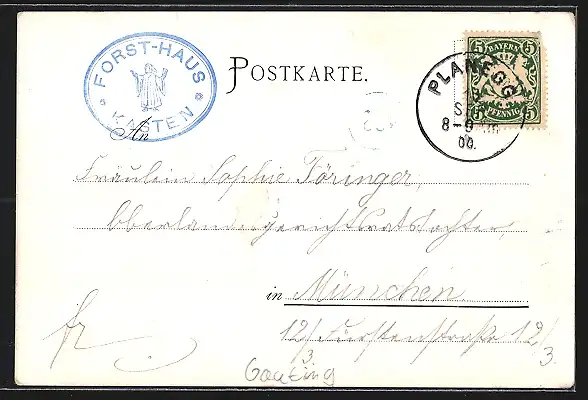 FORST-HAUS
KASTEN
POSTKARTE.
5 BAYERN 5
5 PFENNIG 5
PLANEGG
8-9
00.
An
Fräulein Sophie Föringer,
Oberlandesgerichtsratstochter,
in München
12/ Fürstenstraße 12/3.
3
fr
Gauting